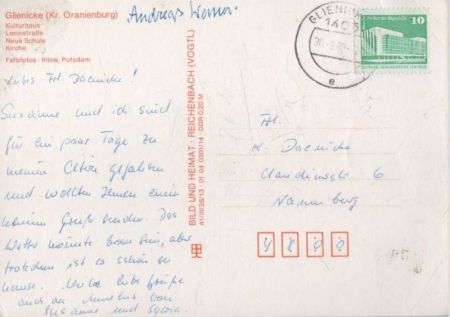 Glienicke (Kr. Oranienburg)
Kulturhaus
Leninstraße
Neue Schule
Kirche
Farbfotos: Ihlow, Potsdam
Andreas
Liebes Frl. Daenicke!
Susanne und ich sind
für ein paar Tage zu
meinen Eltern gefahren
und wollten Ihnen einen
kleinen Gruß senden. Das
Wetter könnte besser sein, aber
trotzdem ist es schön zu
hause. Viele liebe Grüße
auch an von
Susanne und Sylvia.
BILD UND HEIMAT · REICHENBACH (VOGTL)
A1/B/26/13 01 04 0301/14 DDR 0,20 M
GLIENICKE
140
e
10
DDR
Frl.
K. Daenicke
Claudiusstr. 6
Naumburg
4 8 0 0